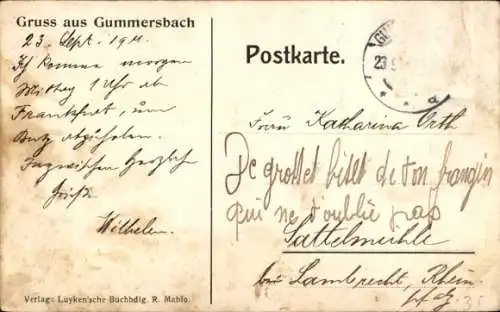 Gruss aus Gummersbach
23. Sept. 191
Ich komme morgen
Mittag 1 Uhr ab
Frankfurt, um
abzuholen.
Inzwischen herzlich
Grüße
Wilhelm.
Postkarte.
GU
23
Frau Katharina Orth
De grosset biset de ton frangin
qui ne t'oublie pas
Sattelmühle
bei Lambrecht, Rhein
pfalz
Verlag: Luyken'sche Buchhdlg. R. Mahlo.